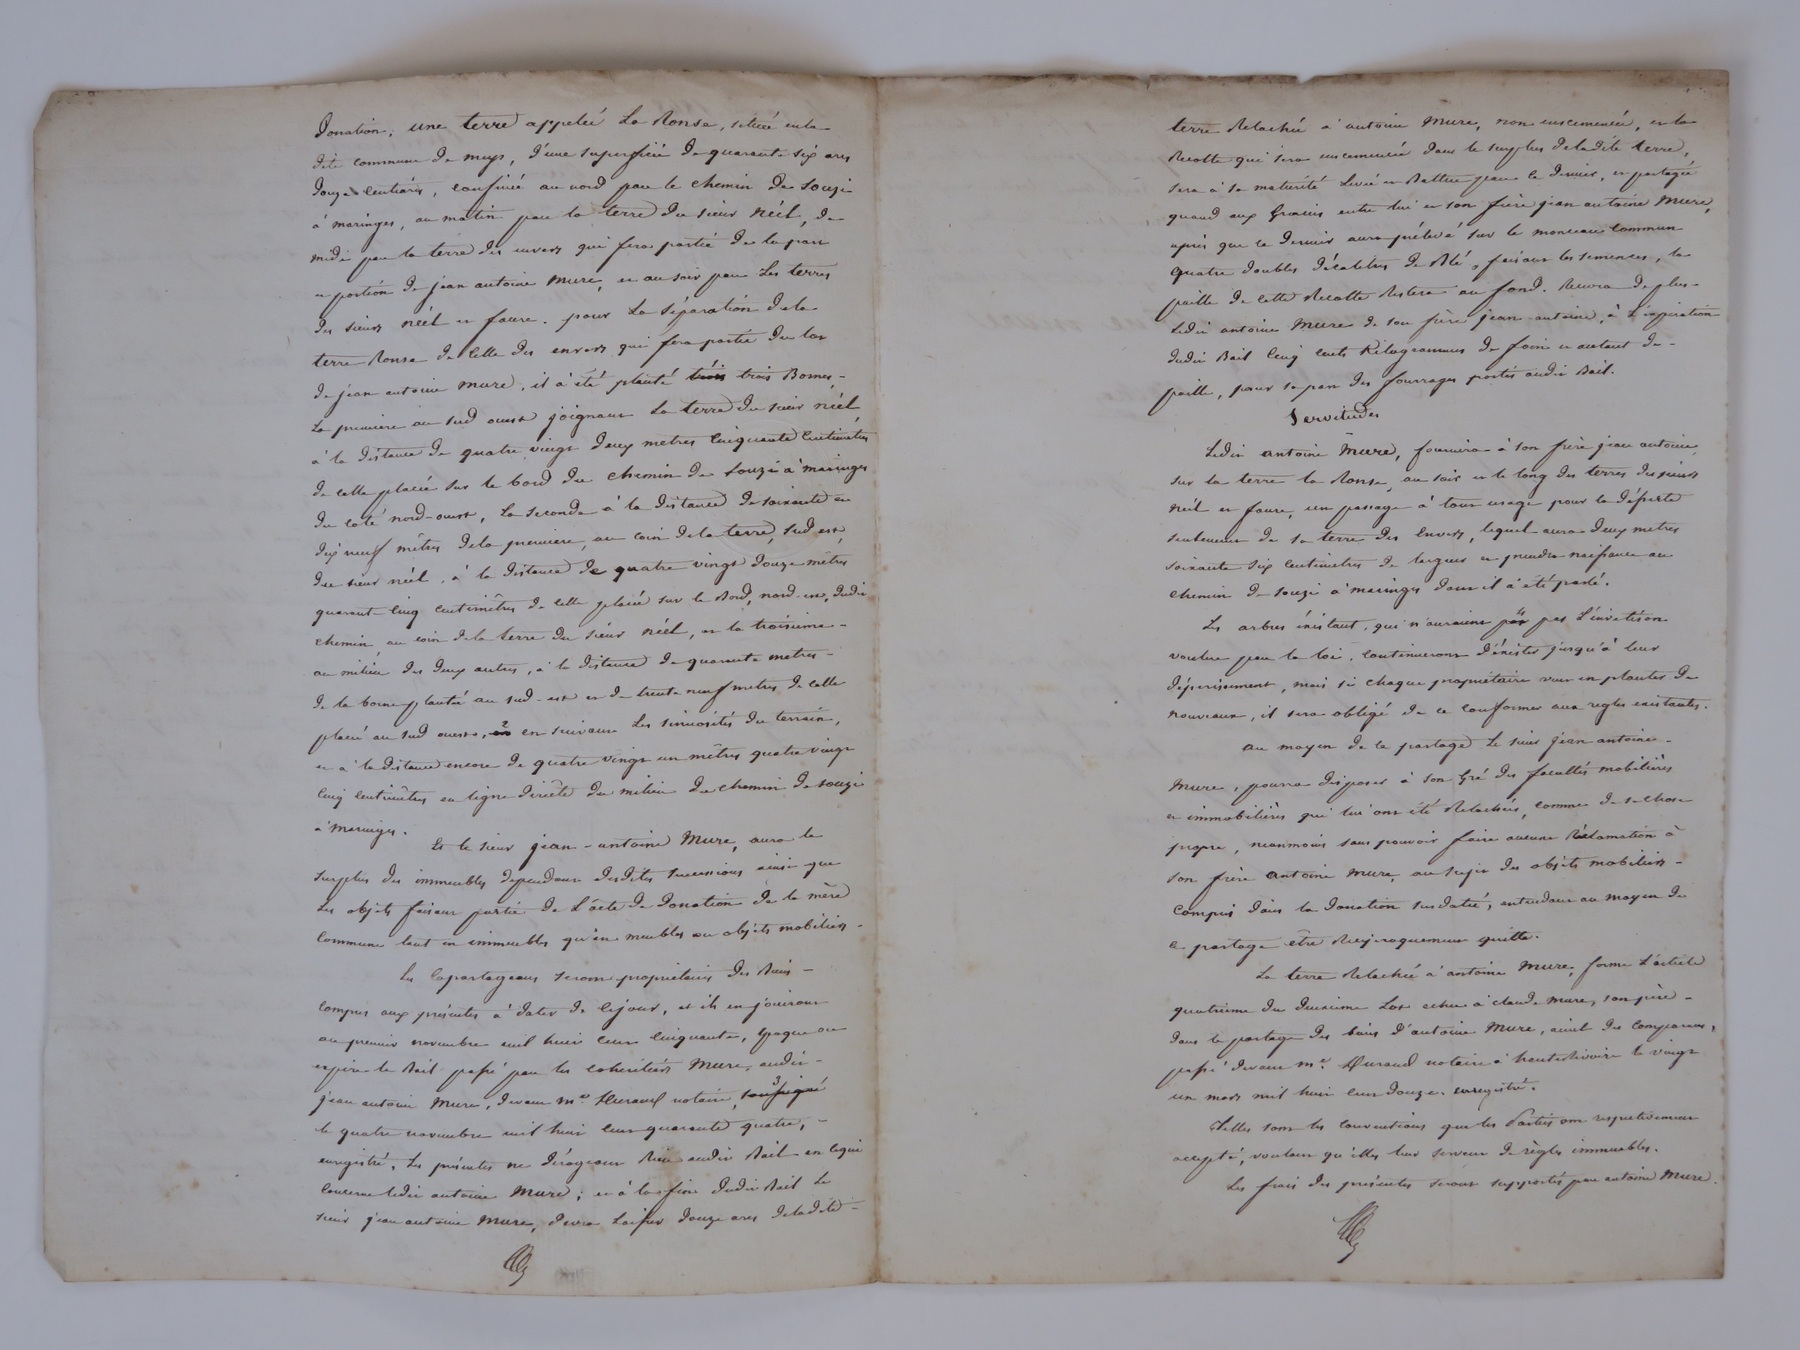 Donation, une terre appelée La Ronse, située en la
dite commune de meys, d'une superficie de quarante six ares
douze centiares, confinée au nord par le chemin de Souzi
à maringes, au matin par la terre du sieur Néel, de
midi par la terre des envers qui fera partie de la part
et portion de jean antoine Mure, et au soir par Les terres
des sieurs Néel et faure. pour La séparation de la
terre Ronse de Celle des envers qui fera partie du lot
de jean antoine Mure, il a été planté trois trois Bornes,
La première au sud ouest joignant La terre du sieur Néel,
à la distance de quatre vingt deux mètres Cinquante Centimètres
de celle placée sur le bord du chemin de Souzi à maringes
du coté nord-ouest, La seconde à la distance de soixante et
dix neuf mètres de la première, au coin de la terre, sud est,
du sieur néel, à la distance de quatre vingt douze mètres
quarante cinq centimètres de celle placée sur le Bord, nord-est, dudit
chemin, au coin de la terre du sieur Néel, et la troisième
au milieu des deux autres, à la distance de quarante mètres
de la borne plantée au sud-est et de trente neuf mètres de celle
placée au sud ouest, en 2 en suivant Les sinuosités du terrein,
et à la distance encore de quatre vingt un mètres quatre vingt
cinq centimètres en ligne directe du milieu du chemin de Souzi
à Maringes.
Et le sieur jean-antoine Mure, aura le
surplus des immeubles dependant desdites successions ainsi que
Les objets faisant partie de L'acte de Donation de la mère
Commune tant en immeubles qu'en meubles ou objets mobiliers.
Les Copartageans seront propriétaires des Biens
compris aux présentes à dater de Cejour, et ils en jouiront
au premier novembre mil huit cent cinquante, époque où
expire le Bail passé par les cohéritiers Mure, audit
jean antoine Mure, devant me. notaire, soussigné 3
le quatre novembre mil huit cent quarante quatre,
enregistré, Les présentes ne dérogeant Rien audit Bail en cequi
Concerne ledit antoine Mure; et à la fin dudit Bail Le
sieur jean antoine Mure, devra Laisser douze ares deladite
terre Relachée à antoine Mure, non encemencée, et la
Récolte qui sera encemencée dans le surplus deladite terre,
sera à sa maturité Levée et Battue par ce dernier, et partagée
quand aux Grains entre lui et son frère jean antoine Mure,
après que ce dernier aura prélevé sur le monceau Commun
quatre doubles décalitres de Blé, faisant les semences, la
paille de cette Récolte Restera au fond. Recevra de plus
Ledit antoine Mure de son frère jean antoine, à L'expiration
dudit Bail Cinq cents Kilogrammes de foin et autant de
paille, pour sa part des fourrages portés audit Bail.
Servitudes
Ledit antoine Mure, fournira à son frère jean antoine
sur la terre la Ronse, au soir et le long des terres des sieurs
Néel et faure, un passage à tout usage pour la déserte
seulement de sa terre des Envers, lequel aura deux mètres
soixante six centimètres de largeur et prendra naissance au
chemin de Souzi à maringes dont il a été parlé.
Les arbres existant, qui n'auraient par 4 pas L'
voulue par la loi, continueront d'exister jusqu'à leur
dépérissement, mais si chaque propriétaire veut en planter de
nouveaux, il sera obligé de ce conformer aux règles existantes.
Au moyen de ce partage Le sieur jean antoine
Mure, pourra disposer à son Gré des facultés mobilières
et immobilières qui lui ont été Relachées, comme de sa chose
propre, neanmoins sans pouvoir faire aucune Réclamation à
son frère Antoine Mure, au sujet des objets mobiliers
compris dans la donation susdatée, entendant au moyen de
ce partage être Réciproquement quitte.
La terre Relachée à antoine Mure, forme L'article
quatrième du deuxième Lot echu à claude Mure, son père
dans le partage des biens d'antoine Mure, aieul des Comparans,
passé devant me. Durand notaire à hauterivoire le vingt
un mars mil huit cent douze. enregistré.
Telles sont les Conventions que les Parties ont respectivement
accepté, voulant qu'elles leur servent de règles immuables.
Les frais des présentes seront supportés par antoine Mure.